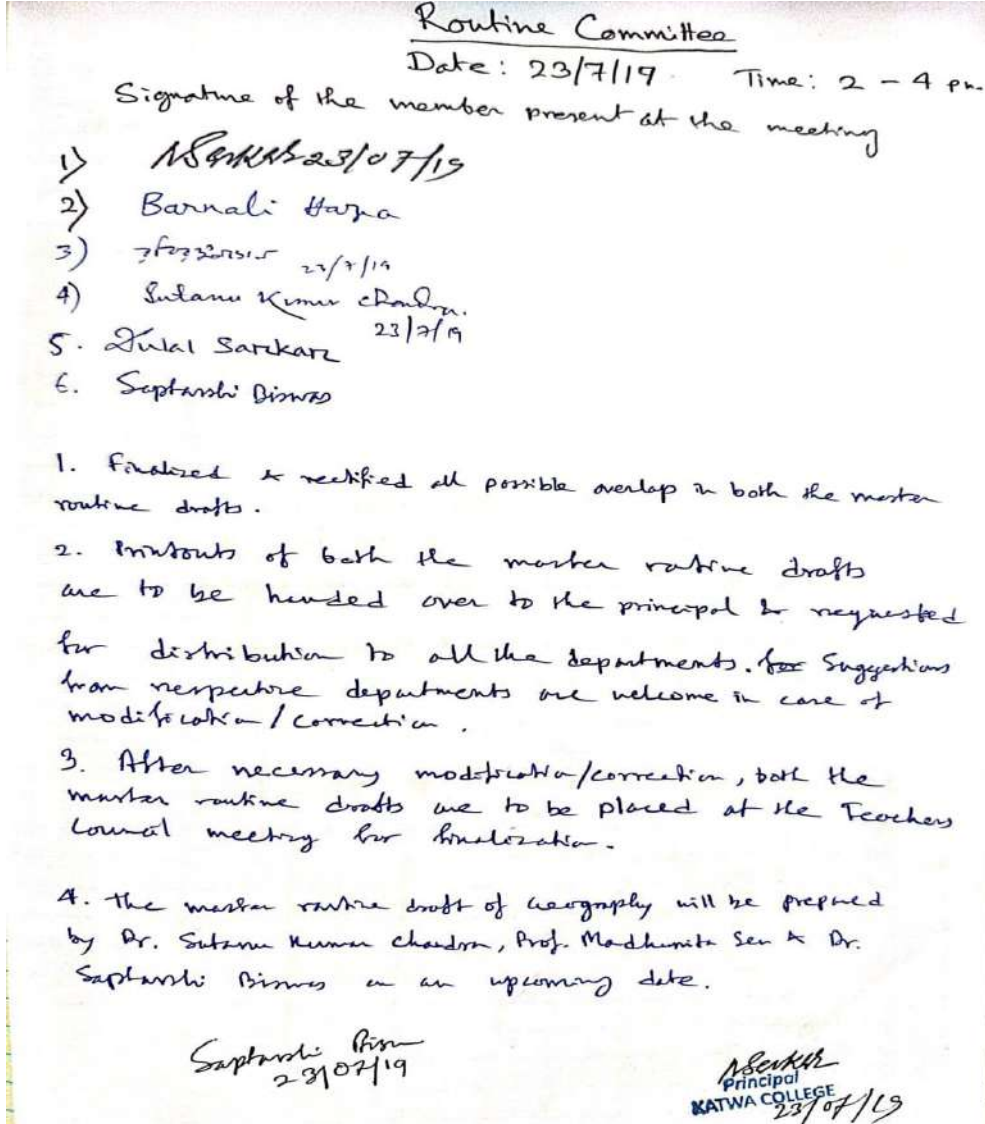 Routine Committee
Date: 23/7/19 Time: 2 – 4 pm.
Signature of the member present at the meeting
1) NSarkar 23/07/19
2) Barnali Hazra
3) 23/7/19
4) Sutanu Kumar Chandra.
23/7/19
5. Dulal Sarkar
6. Saptarshi Biswas
1. Finalized & rectified all possible overlap in both the master
routine drafts.
2. Printouts of both the master routine drafts
are to be handed over to the principal & requested
for distribution to all the departments. for Suggestions
from respective departments are welcome in case of
modification/correction.
3. After necessary modification/correction, both the
master routine drafts are to be placed at the Teachers
Council meeting for finalization.
4. The master routine draft of Geography will be prepared
by Dr. Sutanu Kumar Chandra, Prof. Madhumita Sen & Dr.
Saptarshi Biswas on an upcoming date.
Saptarshi Biswas
23/07/19
NSarkar
Principal
KATWA COLLEGE
23/07/19